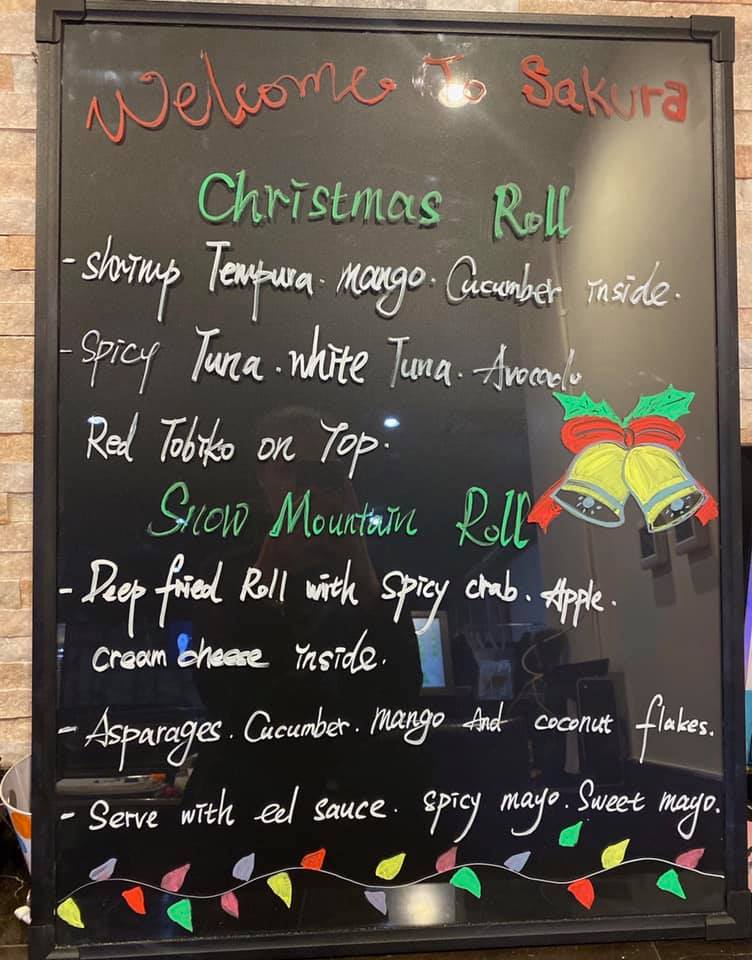 Welcome To Sakura
Christmas Roll
- shrimp Tempura. mango. Cucumber inside.
- Spicy Tuna. white Tuna. Avocado
Red Tobiko on Top.
Snow Mountain Roll
- Deep fried Roll with spicy crab. Apple.
cream cheese inside.
- Asparages. Cucumber. mango And coconut flakes.
- Serve with eel sauce. spicy mayo. Sweet mayo.